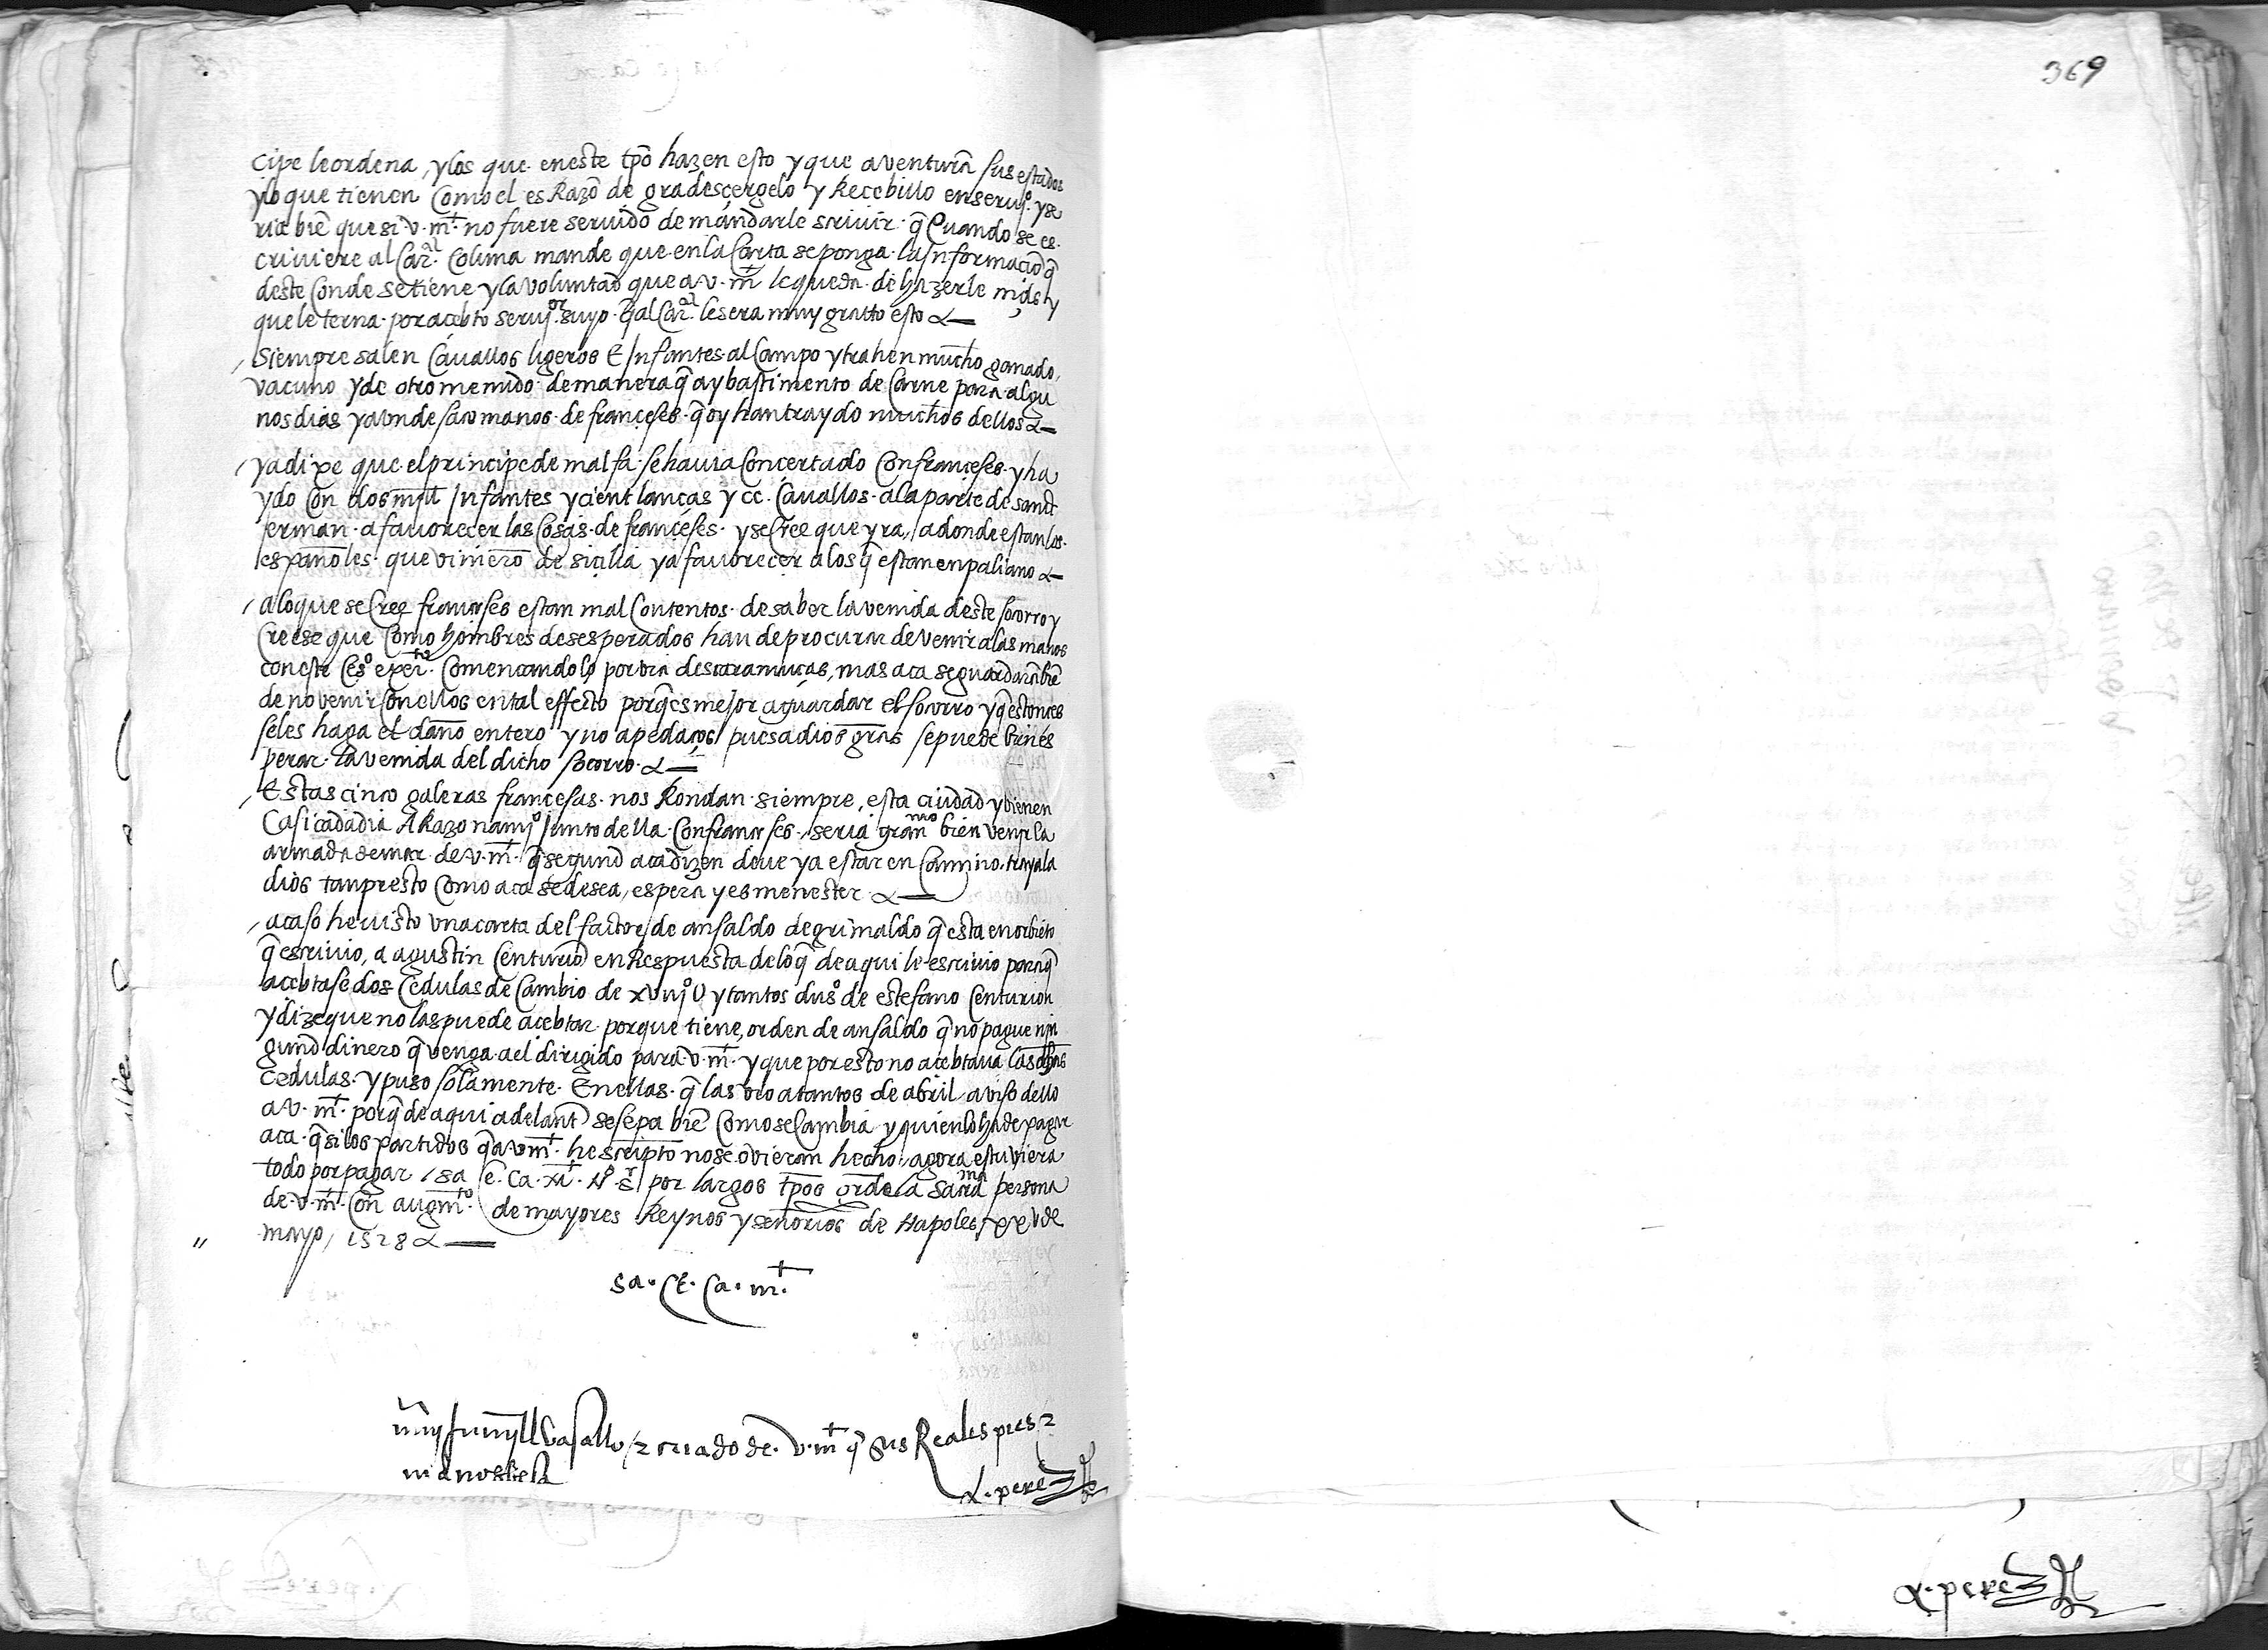 369
cipe le ordena, y los que en este tpõ hazen esto y que aventurã sus estados
y lo que tienen Como el es Razõ de gradesçergelo y Recebillo en serujº. y se
ria biẽ que si v. mt. no fuere servido de mandarle scrivir. q̃ Cuando se es.
criviere al Carl. Colũna mande que en la Carta se ponga. la Informaciõ q̃
deste Conde se tiene y la voluntad que a v. mt le queda. de hazerle mds y
que le terna. por acebto serujor. suyo. q̃ al Carl. le sera muy gratto esto
Siempre salen Cavallos ligeros E Infantes. al Campo y trahen mucho ganado,
vacuno y de otro menudo. de manera q̃ ay bastimento de Carne para. algu
nos dias y aun de saco manos. de françeses. q̃ oy han traydo muchos dellos
ya dixe que. el principe de malfa. se havia Concertado Con françeses. y ha
ydo Con dos mill Infantes y cient lanças y cc. Cavallos. a la parte de sanct
jerman. a favorecer las Cosas. de françeses. y se Cree que yra, a donde estan los.
españoles. que vinierõ de siçilia y a favorecer a los q̃ estan en paliano
a lo que se Cree franceses estan mal Contentos. de saber la venida deste socorro y
Creese que Como hombres desesperados han de procurar de venir a las manos
con este Cesº exerto. Començandolo por via descaramuças, mas aca se guardarã biẽ
de no venir Con ellos en tal effecto porq̃ es mejor aguardar el socorro y q̃ estonces
se les haga el daño entero y no a pedaços pues a dios grãs se puede bien es
perar. la venida del dicho socorro.
Estas cinco galeras francesas. nos Rondan. siempre, esta ciudad y bienen
Casi cada dia A Razonamjº Junto della. Con franceses. seria granmo bien venir la
armada de mar. de v. mt. q̃ segund aca dizen deve ya estar en Camino. trayala
dios tan presto Como aca se desea, espera y es menester.
acaso he visto una carta del factor de ansaldo de grimaldo q̃ esta en orbieto
q̃ escrivio, a agustin Centuriõ en Respuesta de lo q̃ de aqui le escrivio para q̃
acebtase dos Cedulas de Cambio de xvuj U y tantos dusº de estefano Centurion
y dize que no las puede acebtar. porque tiene, orden de ansaldo q̃ no pague nin
gund dinero q̃ venga. a el dirigido para v. mt. y que por esto no acebtava las dhas
Cedulas. y puso solamente. En ellas. q̃ las vio a tantos de abril. aviso dello
a v. mt. porq̃ de aqui adelant̃ se sepa biẽ Como se Cambia y quien lo ha de pagar
aca. q̃ si los partidos q̃ a v. mt. he scripto no se ovieran hecho, agora estuviera
todo por pagar / sa Ce. Ca. mt. nº. sr por largos tpõs grde la sacrama persona
de v. mt. Con augmto. de mayores Reynos y señorios de Napoles, xxv de
mayo, 1528
Sa. CE. Ca. mt.
muy humyll Vasallo z criado de. v. mt q̃ sus Reales pies z
manos besa
perez
perez